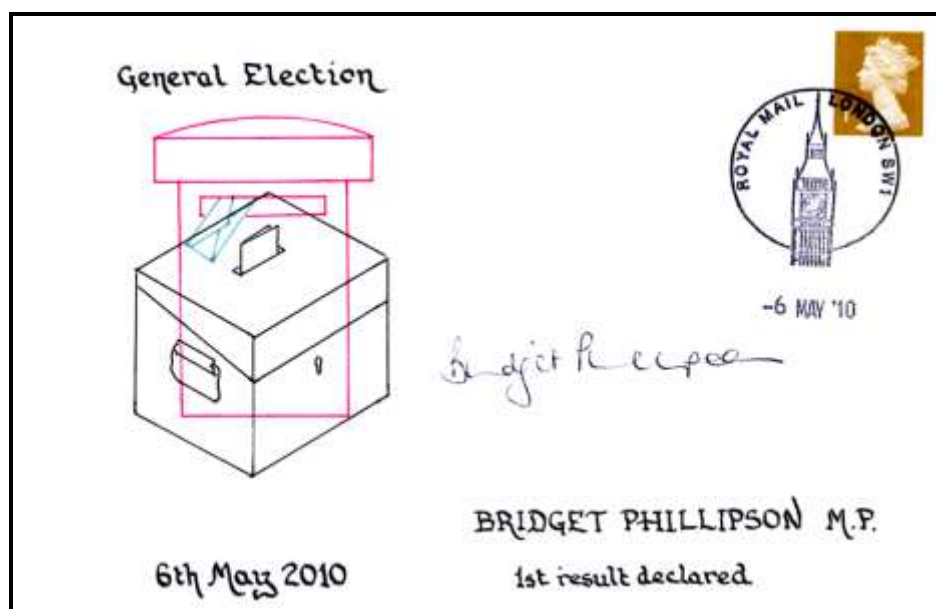 General Election
ROYAL MAIL LONDON SW1
-6 MAY '10
Bridget Phillipson
BRIDGET PHILLIPSON M.P.
6th May 2010
1st result declared